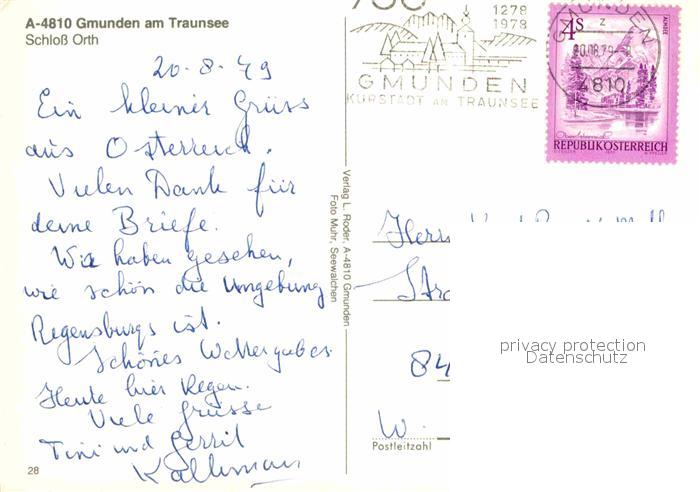 A-4810 Gmunden am Traunsee
Schloß Orth
20-8-79
Ein kleiner Grüss
aus Osterreich.
Vielen Dank für
deine Briefe.
Wir haben gesehen,
wie schön die Umgebung
Regensburgs ist.
Schönes Wetter gabes.
Heute hier Regen.
Viele Grüsse
Tini und Gerrit
28
Verlag L. Roder, A-4810 Gmunden
Foto Muhr, Seewalchen
1278
1978
GMUNDEN
KURSTADT AM TRAUNSEE
GMUNDEN
20.08.79
4810
4S
ALMSEE
REPUBLIK ÖSTERREICH
Herrn
84
W.
Postleitzahl
privacy protection
Datenschutz